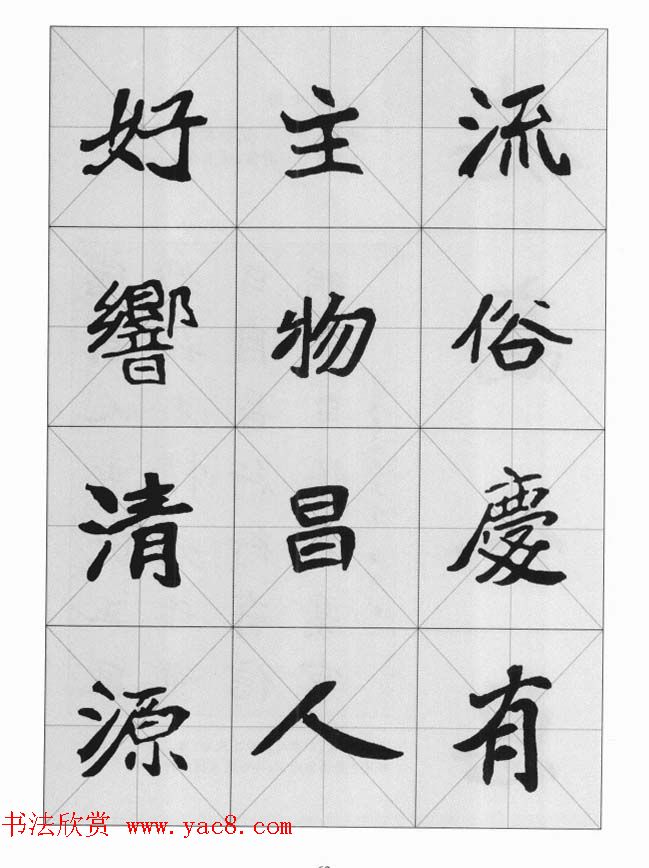 流俗慶有
主物昌人
好響清源
书法欣赏 www.yac8.com